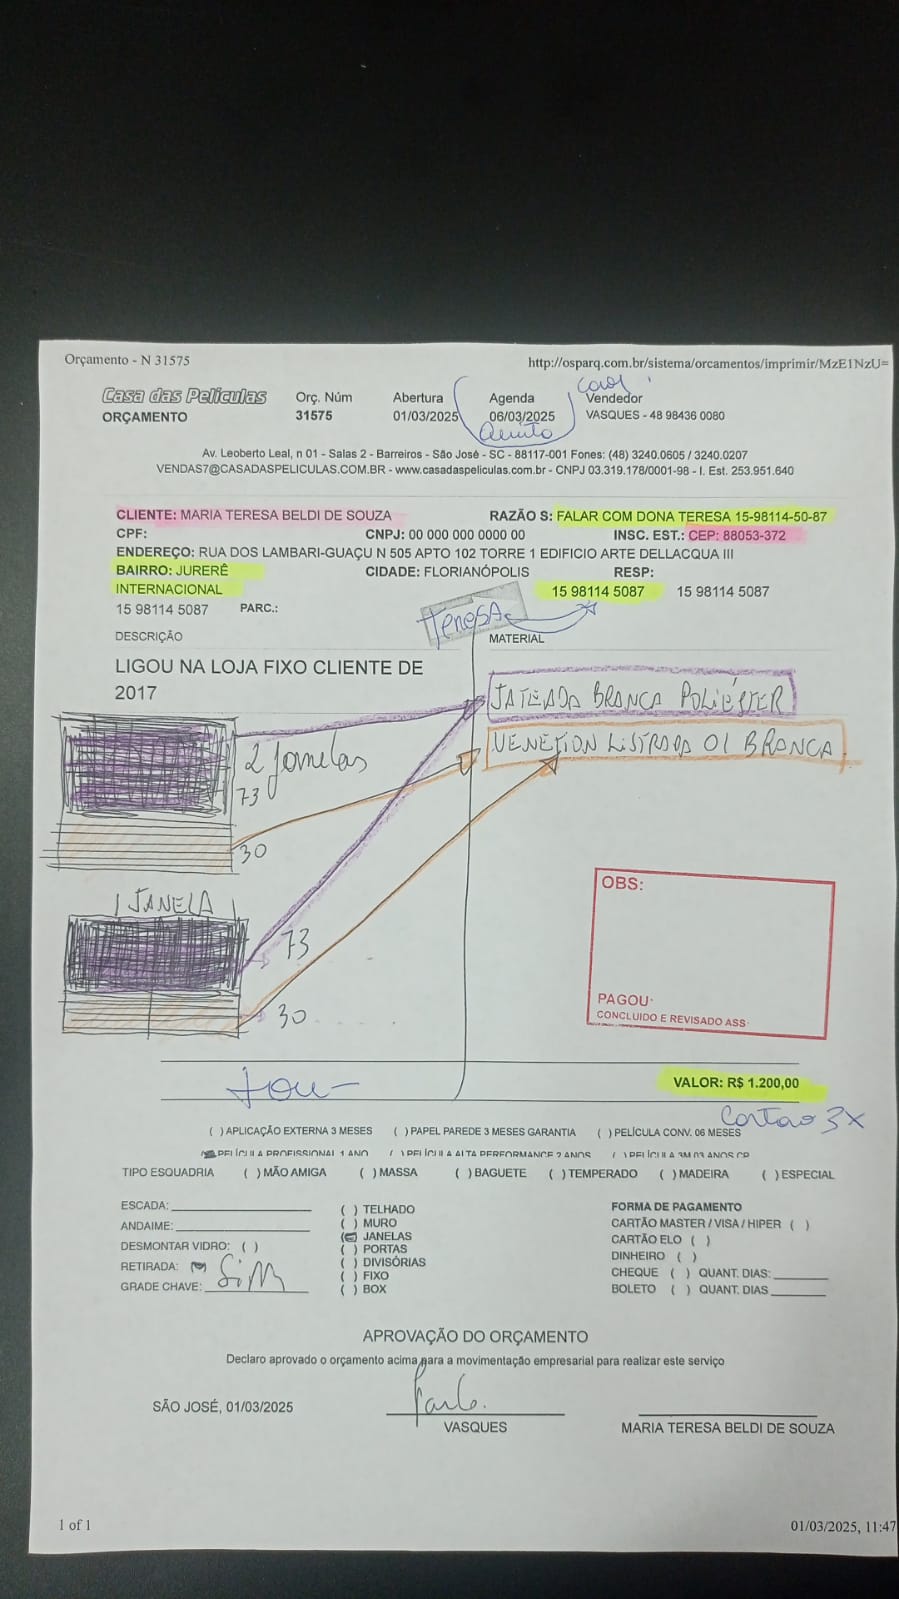 Orçamento - N 31575 http://osparq.com.br/sistema/orcamentos/imprimir/MzE1NzU=
Casa das Películas Orç. Núm Abertura Agenda Vendedor
ORÇAMENTO 31575 01/03/2025 06/03/2025 VASQUES - 48 98436 0080
Av. Leoberto Leal, n 01 - Salas 2 - Barreiros - São José - SC - 88117-001 Fones: (48) 3240.0605 / 3240.0207
VENDAS7@CASADASPELICULAS.COM.BR - www.casadaspeliculas.com.br - CNPJ 03.319.178/0001-98 - I. Est. 253.951.640
CLIENTE: MARIA TERESA BELDI DE SOUZA RAZÃO S: FALAR COM DONA TERESA 15-98114-50-87
CPF: CNPJ: 00 000 000 0000 00 INSC. EST.: CEP: 88053-372
ENDEREÇO: RUA DOS LAMBARI-GUAÇU N 505 APTO 102 TORRE 1 EDIFICIO ARTE DELLACQUA III
BAIRRO: JURERÊ CIDADE: FLORIANÓPOLIS RESP:
INTERNACIONAL 15 98114 5087 15 98114 5087
15 98114 5087 PARC.:
TERESA
DESCRIÇÃO MATERIAL
LIGOU NA LOJA FIXO CLIENTE DE
2017
JATEADA BRANCA POLIÉSTER
2 Janelas VENETION LISTRADA 01 BRANCA
73
30
1 JANELA
73
30
OBS:
PAGOU:
CONCLUIDO E REVISADO ASS:
VALOR: R$ 1.200,00
Cartao 3X
( ) APLICAÇÃO EXTERNA 3 MESES ( ) PAPEL PAREDE 3 MESES GARANTIA ( ) PELÍCULA CONV. 06 MESES
PELÍCULA PROFISSIONAL 1 ANO ( ) PELÍCULA ALTA PERFORMANCE 2 ANOS ( ) PELÍCULA 3M 03 ANOS CP
TIPO ESQUADRIA ( ) MÃO AMIGA ( ) MASSA ( ) BAGUETE ( ) TEMPERADO ( ) MADEIRA ( ) ESPECIAL
ESCADA: ( ) TELHADO FORMA DE PAGAMENTO
ANDAIME: ( ) MURO CARTÃO MASTER / VISA / HIPER ( )
DESMONTAR VIDRO: ( ) ( ) JANELAS CARTÃO ELO ( )
RETIRADA: ( ) Sim ( ) PORTAS DINHEIRO ( )
GRADE CHAVE: ( ) DIVISÓRIAS CHEQUE ( ) QUANT. DIAS:
( ) FIXO BOLETO ( ) QUANT. DIAS
( ) BOX
APROVAÇÃO DO ORÇAMENTO
Declaro aprovado o orçamento acima para a movimentação empresarial para realizar este serviço
SÃO JOSÉ, 01/03/2025
VASQUES MARIA TERESA BELDI DE SOUZA
1 of 1 01/03/2025, 11:47